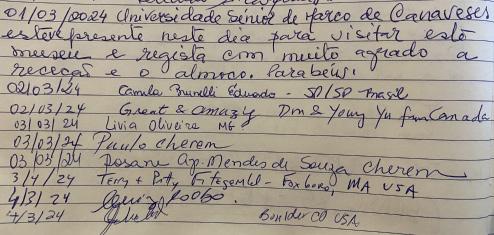 01/03/2024 Universidade Senior de Marco de Canaveses
esteve presente neste dia para visitar este
museu e regista com muito agrado a
receção e o almoço. Parabéns!
02/03/24 Camila Brunelli Eduardo - SP/SP Brasil
02/03/24 Great & amazy Dm & Young Yu from Canada
03/03/24 Livia Oliveira MG
03/03/24 Paulo Cherem
03/03/24 Rosane Ap. Mendes de Souza Cherem
3/4/24 Terry & Patty Fitzgerald - Foxboro, MA USA
4/3/24
4/3/24 Boulder CO USA